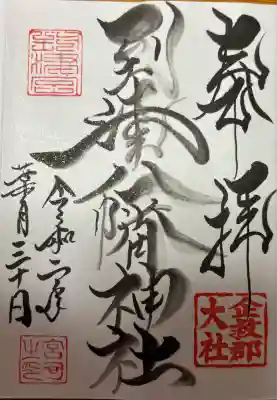 奉拝
企救郡
大社
到津八幡神社
令和二年
葉月三十日
宮司
之印